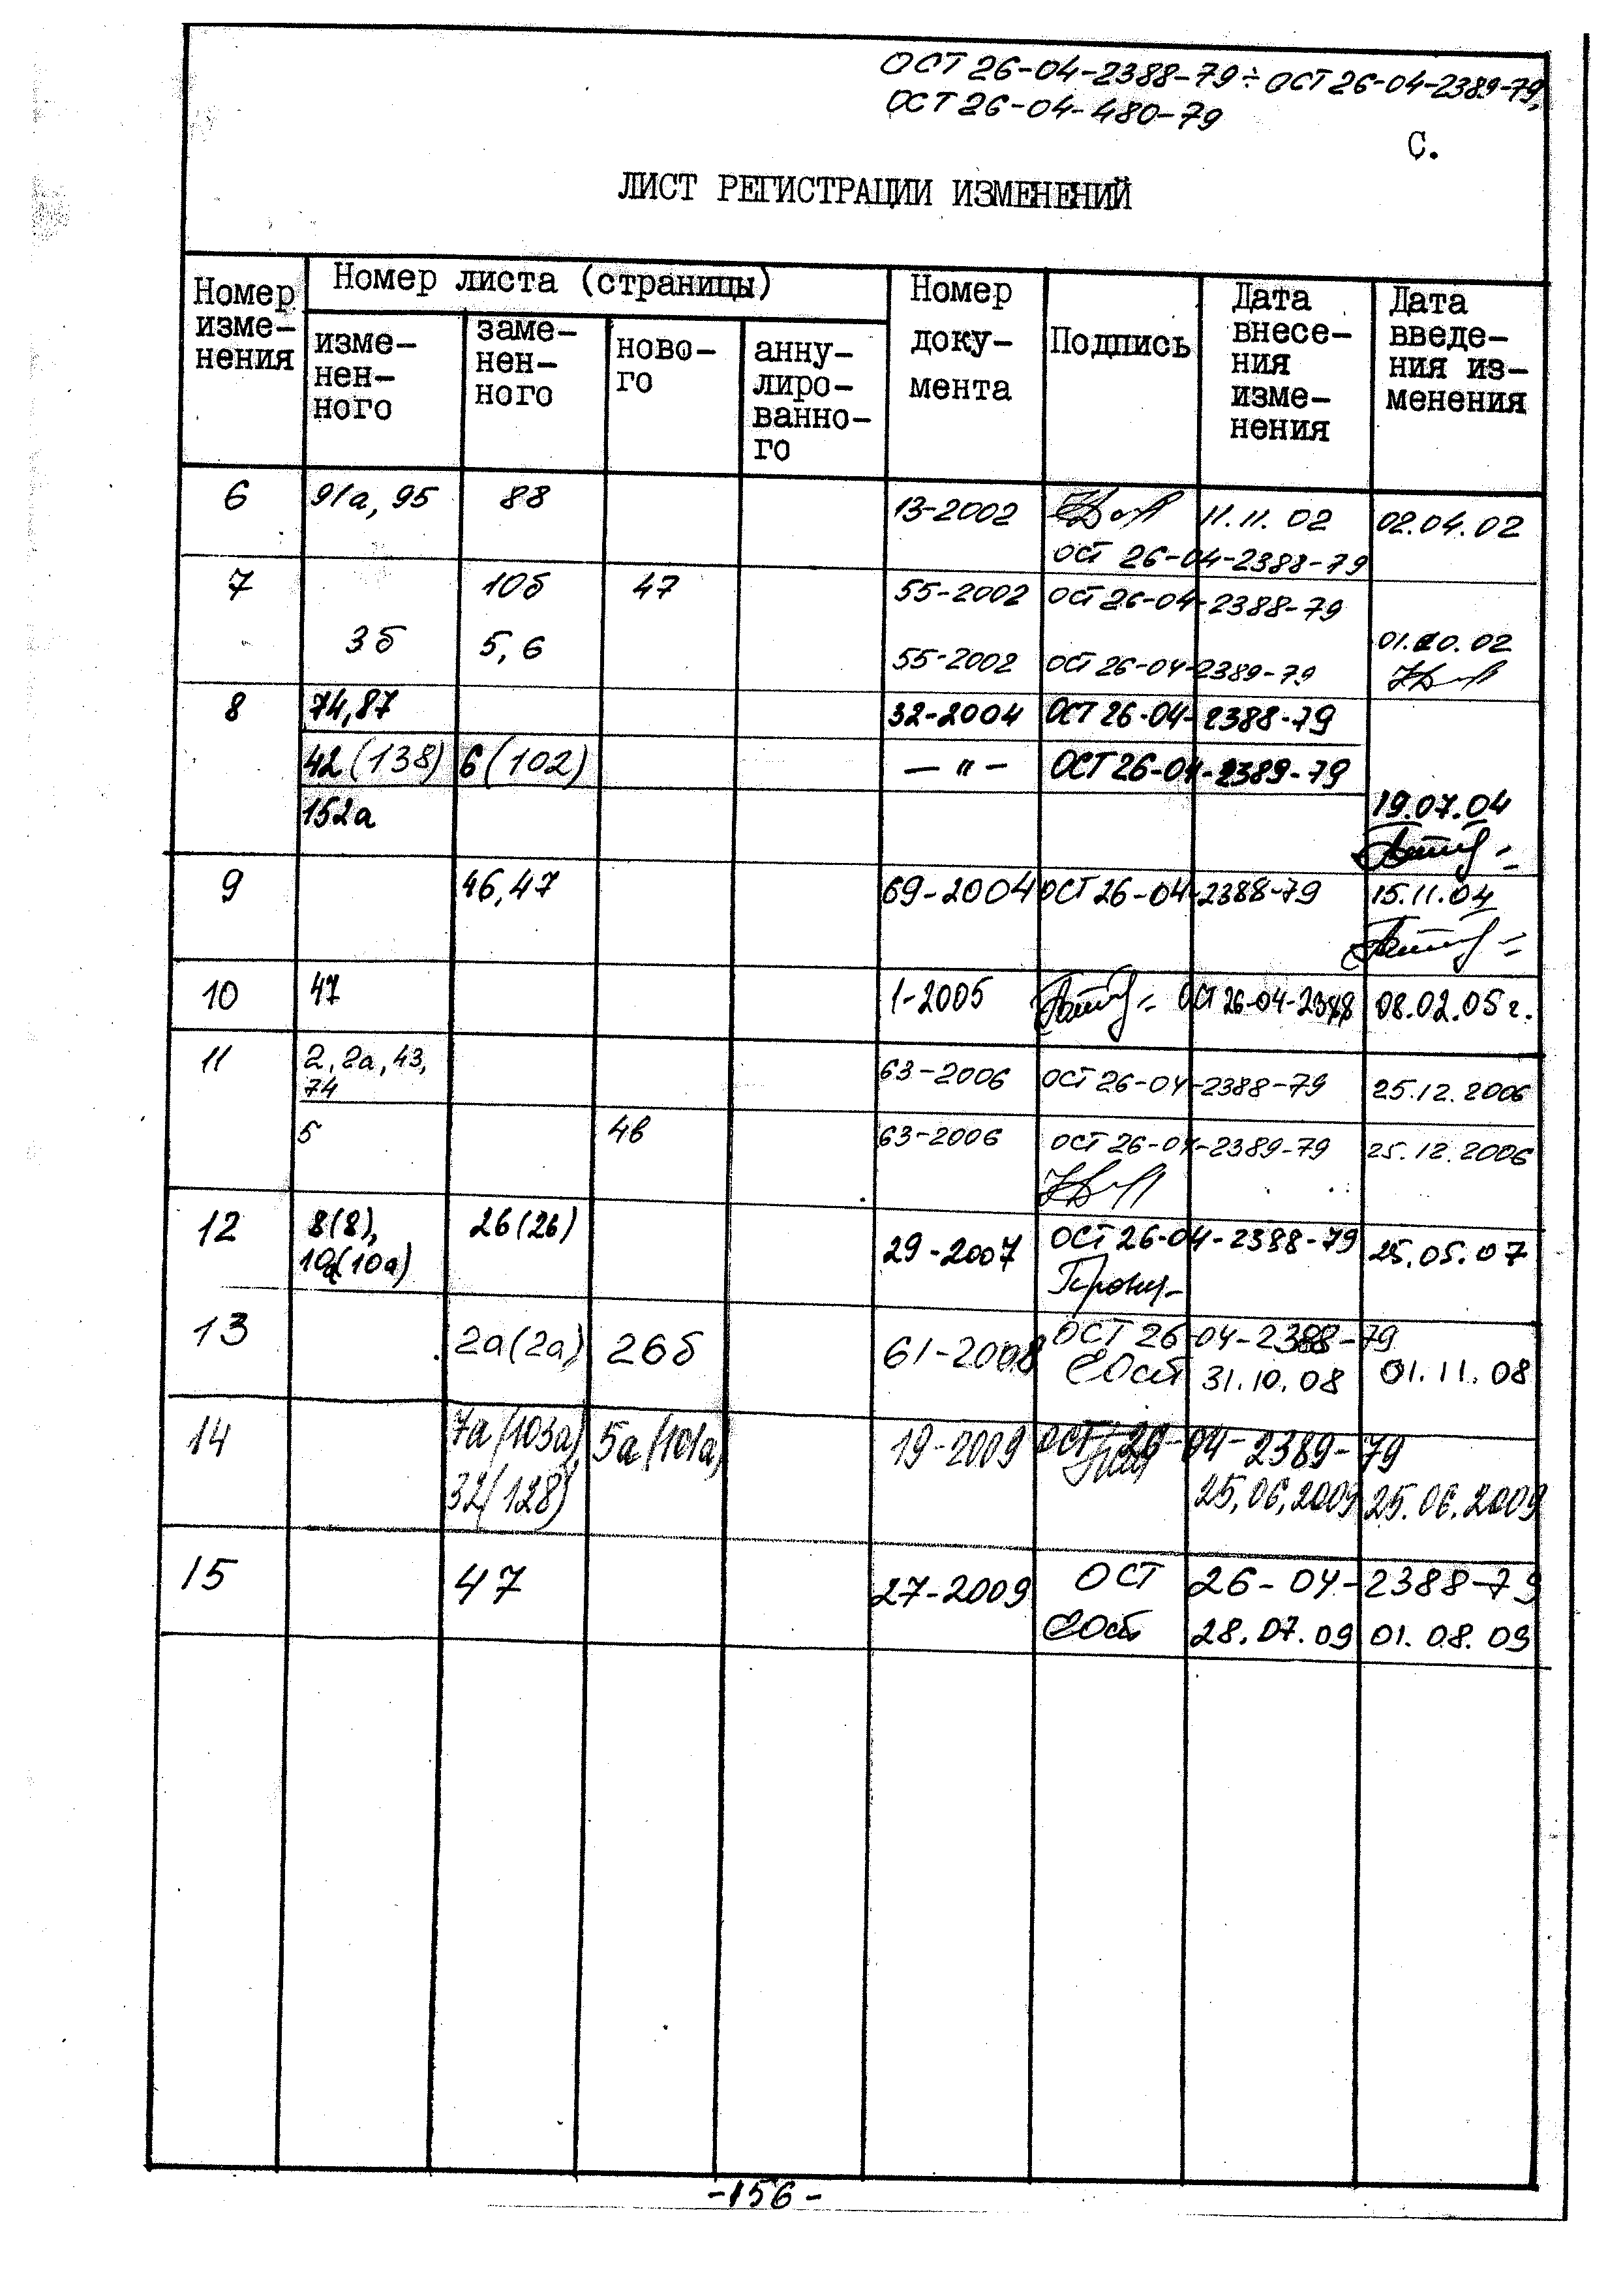 ОСТ 26-04-2388-79÷ОСТ 26-04-2389-79,
ОСТ 26-04-480-79
С.
ЛИСТ РЕГИСТРАЦИИ ИЗМЕНЕНИЙ
Номер изме-нения
Номер листа (страницы)
изме-нен-ного
заме-нен-ного
ново-го
анну-лиро-ванно-го
Номер доку-мента
Подпись
Дата внесе-ния изме-нения
Дата введе-ния из-менения
6 91а, 95 88 13-2002 11.11.02 02.04.02
ОСТ 26-04-2388-79
7 10б 47 55-2002 ОСТ 26-04-2388-79
3б 5, 6 55-2002 ОСТ 26-04-2389-79 01.10.02
8 74,87 32-2004 ОСТ 26-04-2388-79
42(138) 6(102) — " — ОСТ 26-04-2389-79
152а 19.07.04
9 46,47 69-2004 ОСТ 26-04-2388-79 15.11.04
10 47 1-2005 ОСТ 26-04-2388 08.02.05г.
11 2, 2а, 43, 63-2006 ОСТ 26-04-2388-79 25.12.2006
74
5 4в 63-2006 ОСТ 26-04-2389-79 25.12.2006
12 8(8), 26(26) 29-2007 ОСТ 26-04-2388-79 25.05.07
10а(10а)
13 2а(2а) 26б 61-2008 ОСТ 26-04-2388-79
31.10.08 01.11.08
14 7а(103а), 5а(101а) 19-2009 ОСТ 26-04-2389-79
32(128) 25.06.2009 25.06.2009
15 47 27-2009 ОСТ 26-04-2388-79
28.07.09 01.08.09
-156-